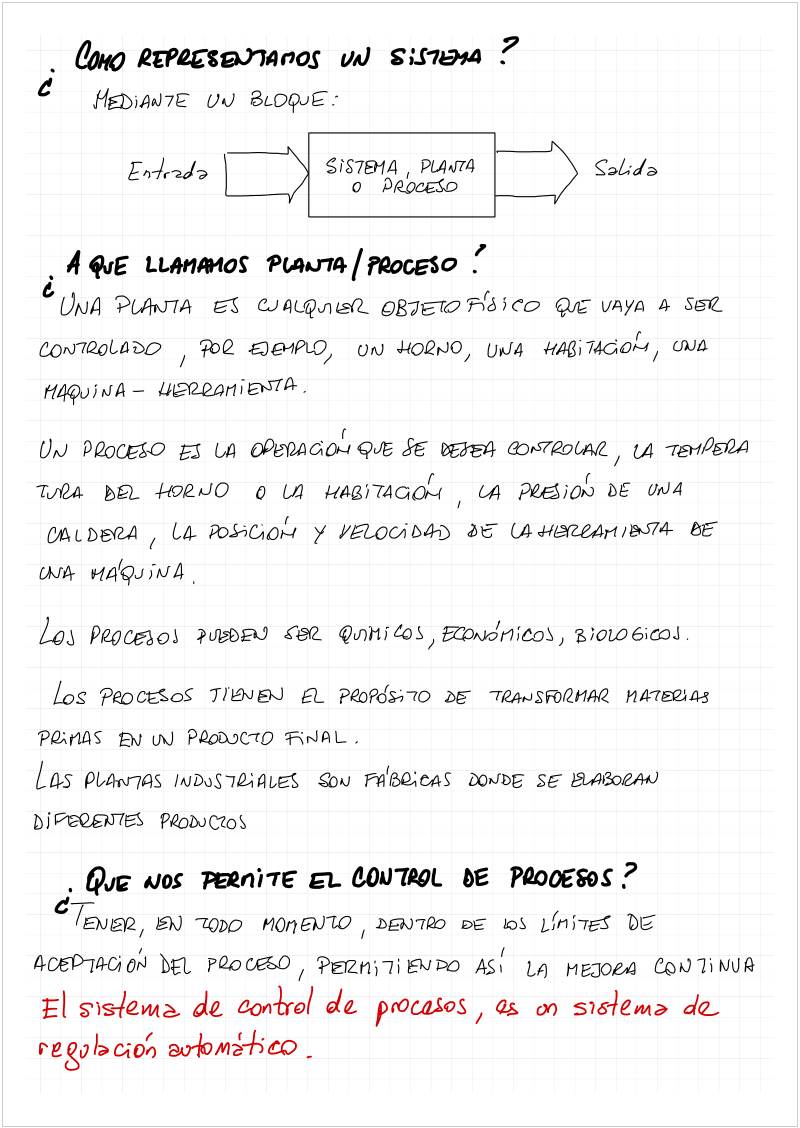 ¿COMO REPRESENTAMOS UN SISTEMA?
MEDIANTE UN BLOQUE:
Entrada
SISTEMA, PLANTA
O PROCESO
Salida
¿A QUE LLAMAMOS PLANTA/PROCESO?
UNA PLANTA ES CUALQUIER OBJETO FÍSICO QUE VAYA A SER
CONTROLADO, POR EJEMPLO, UN HORNO, UNA HABITACIÓN, UNA
MAQUINA-HERRAMIENTA.
UN PROCESO ES LA OPERACIÓN QUE SE DESEA CONTROLAR, LA TEMPERA
TURA DEL HORNO O LA HABITACIÓN, LA PRESIÓN DE UNA
CALDERA, LA POSICIÓN Y VELOCIDAD DE LA HERRAMIENTA DE
UNA MÁQUINA.
LOS PROCESOS PUEDEN SER QUIMICOS, ECONÓMICOS, BIOLOGICOS.
LOS PROCESOS TIENEN EL PROPÓSITO DE TRANSFORMAR MATERIAS
PRIMAS EN UN PRODUCTO FINAL.
LAS PLANTAS INDUSTRIALES SON FÁBRICAS DONDE SE ELABORAN
DIFERENTES PRODUCTOS
¿QUE NOS PERMITE EL CONTROL DE PROCESOS?
TENER, EN TODO MOMENTO, DENTRO DE LOS LÍMITES DE
ACEPTACIÓN DEL PROCESO, PERMITIENDO ASÍ LA MEJORA CONTINUA
El sistema de control de procesos, es un sistema de
regulación automático.